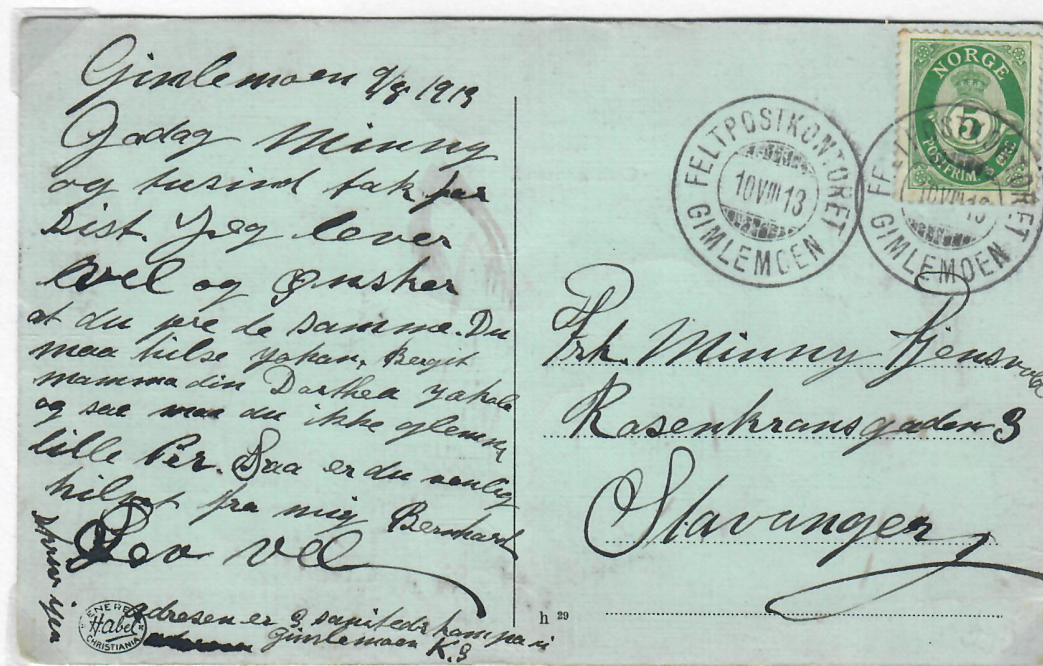 Gimlemoen 9/8 1913
Godag Minny
og tusind tak for
sist. Jeg lever
vel og ønsker
at du jøre de samme. Du
maa hilse Johan, Bergit
mamma din Dorthea Jakob
og saa maa du ikke glemme
lille Per. Saa er du venlig
hilset fra mig Bernhard
Lev vel
Skriv ijen
Adresen er 3 sanitedskompani
Gimlemoen K.S
ENERET
Habel
CHRISTIANIA
h 29
NORGE
5
POSTFRIM. ØRE
FELTPOSTKONTORET
10 VIII 13
GIMLEMOEN
FELTPOSTKONTORET
10 VIII 13
GIMLEMOEN
Frk. Minny Tjensvold
Rosenkransgaden 3
Stavanger